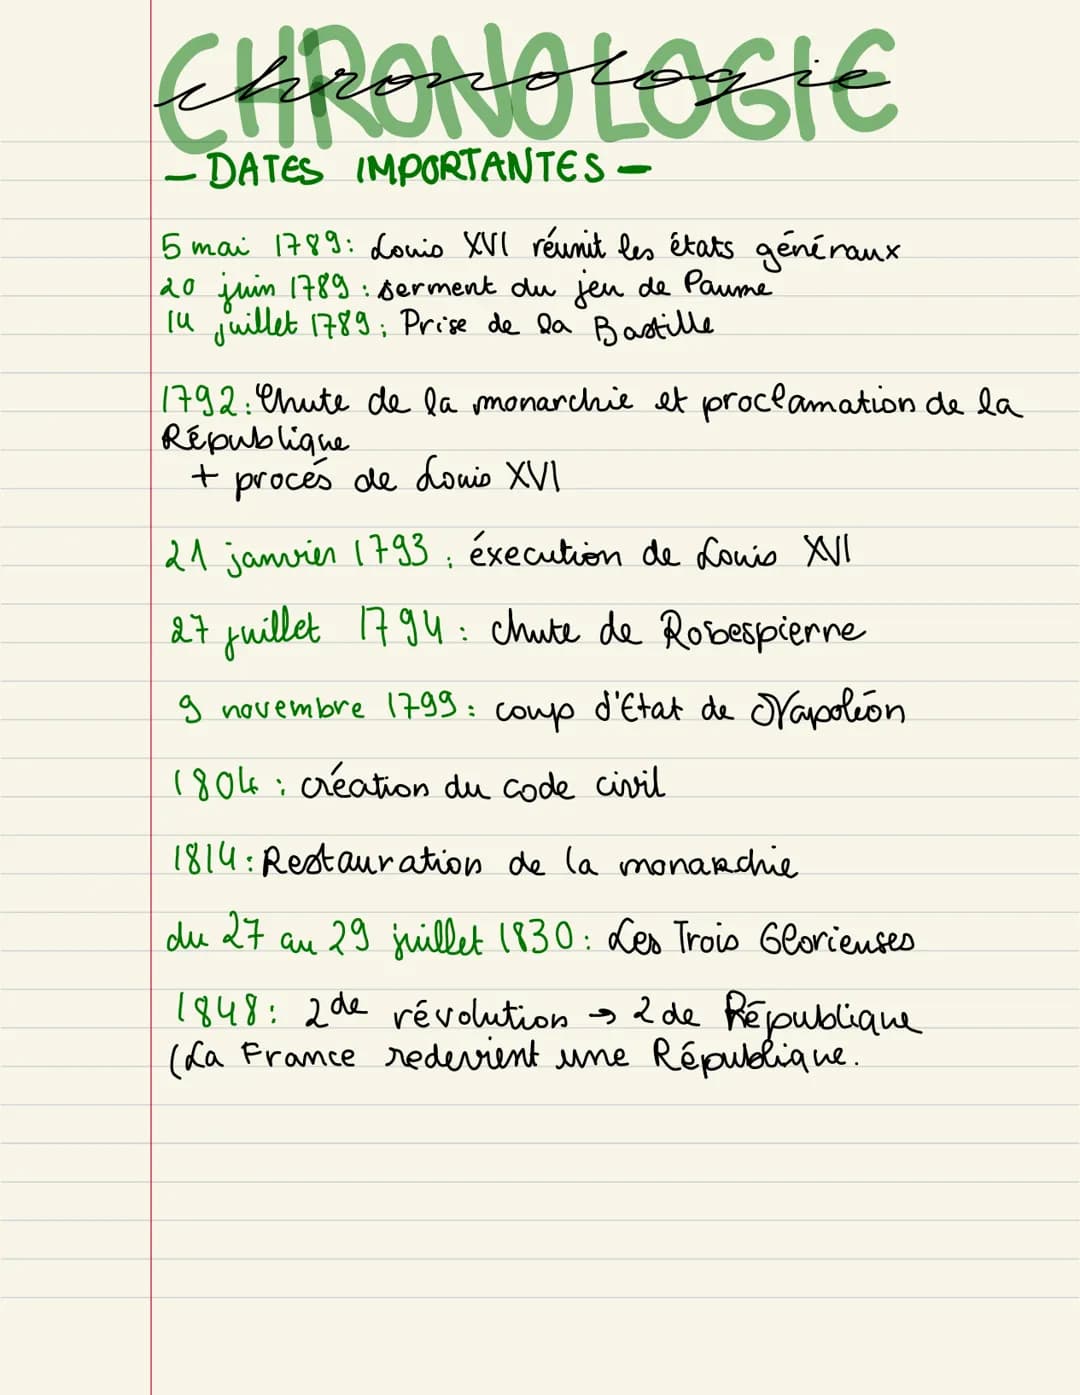 CHRONOLOGIE
chronologie
- DATES IMPORTANTES -
5 mai 1789: Louis XVI réunit les états généraux
20 juin 1789: serment du jeu de Paume
14 juillet 1789: Prise de la Bastille
1792: Chute de la monarchie et proclamation de la
République
+ procés de Louis XVI
21 janvier 1793: éxecution de Louis XVI
27 juillet 1794: chute de Robespierre
9 novembre 1799: coup d'Etat de Napoléon
1804: création du code civil
1814: Restauration de la monarchie
du 27 au 29 juillet 1830: Les Trois Glorieuses
1848: 2de révolution → 2de République
(La France redevient une République.